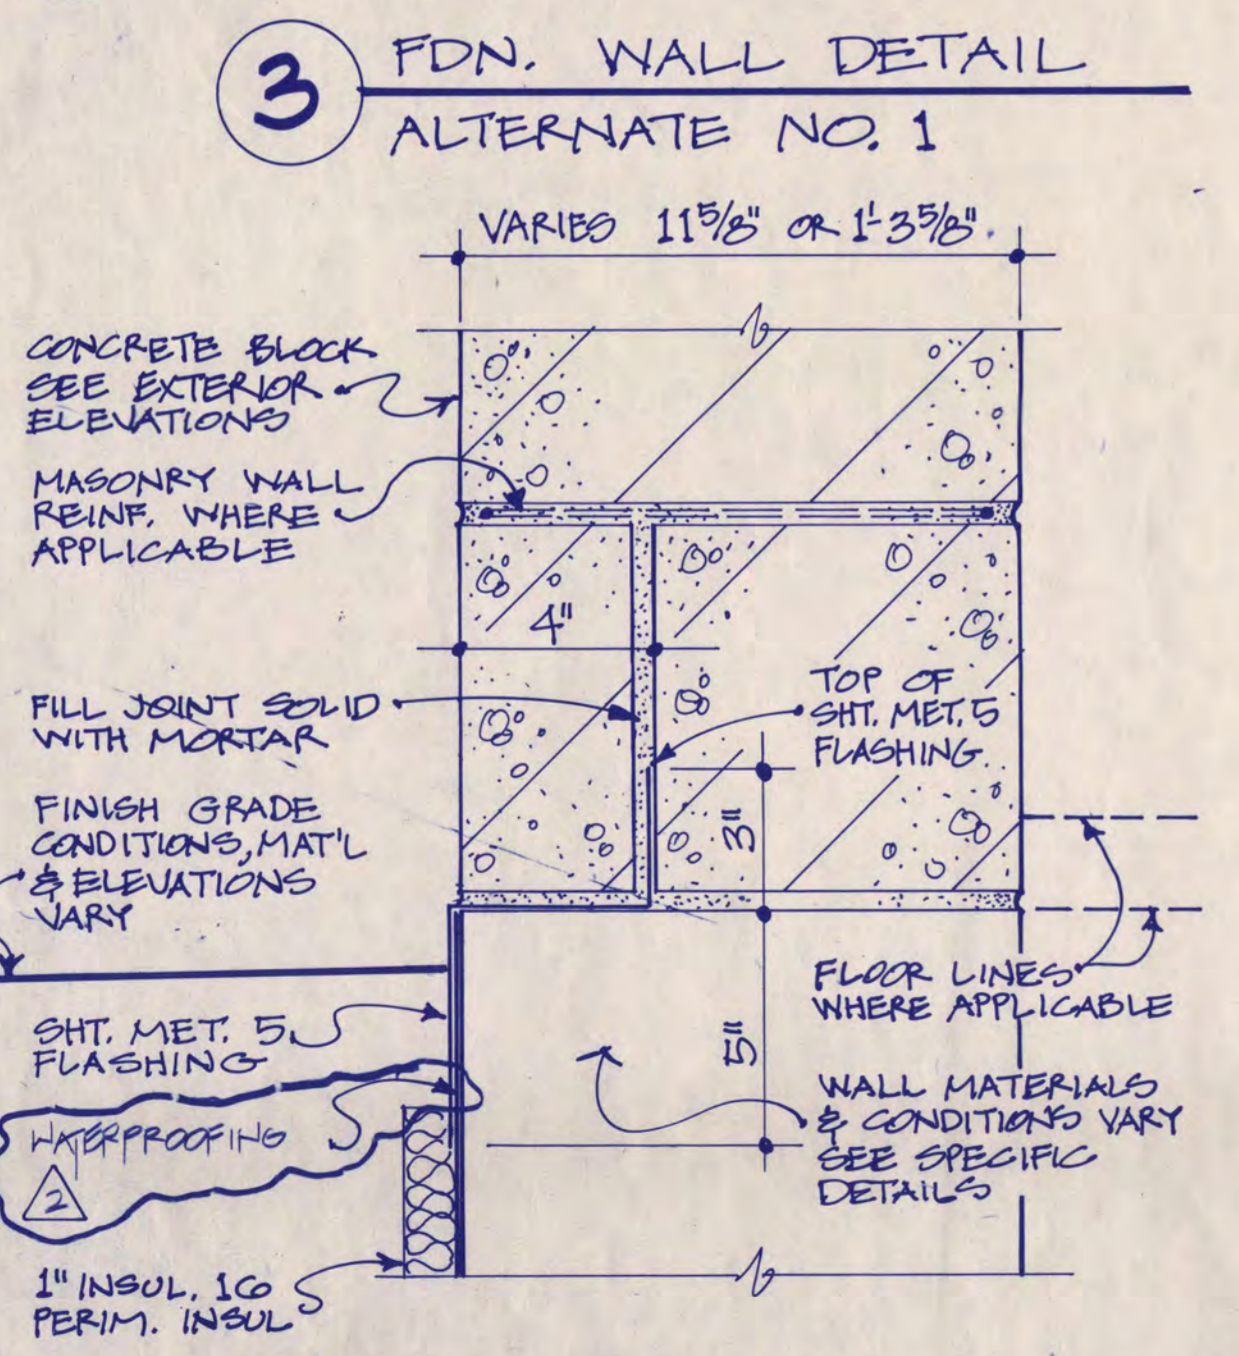 3
FDN. WALL DETAIL
ALTERNATE NO. 1
VARIES 11 5/8" OR 1'-3 5/8"
CONCRETE BLOCK
SEE EXTERIOR
ELEVATIONS
MASONRY WALL
REINF. WHERE
APPLICABLE
4"
FILL JOINT SOLID
WITH MORTAR
TOP OF
SHT. MET. 5
FLASHING
3"
FINISH GRADE
CONDITIONS, MAT'L
& ELEVATIONS
VARY
FLOOR LINES
WHERE APPLICABLE
SHT. MET. 5
FLASHING
5"
WALL MATERIALS
& CONDITIONS VARY
SEE SPECIFIC
DETAILS
WATERPROOFING
2
1" INSUL. 16
PERIM. INSUL